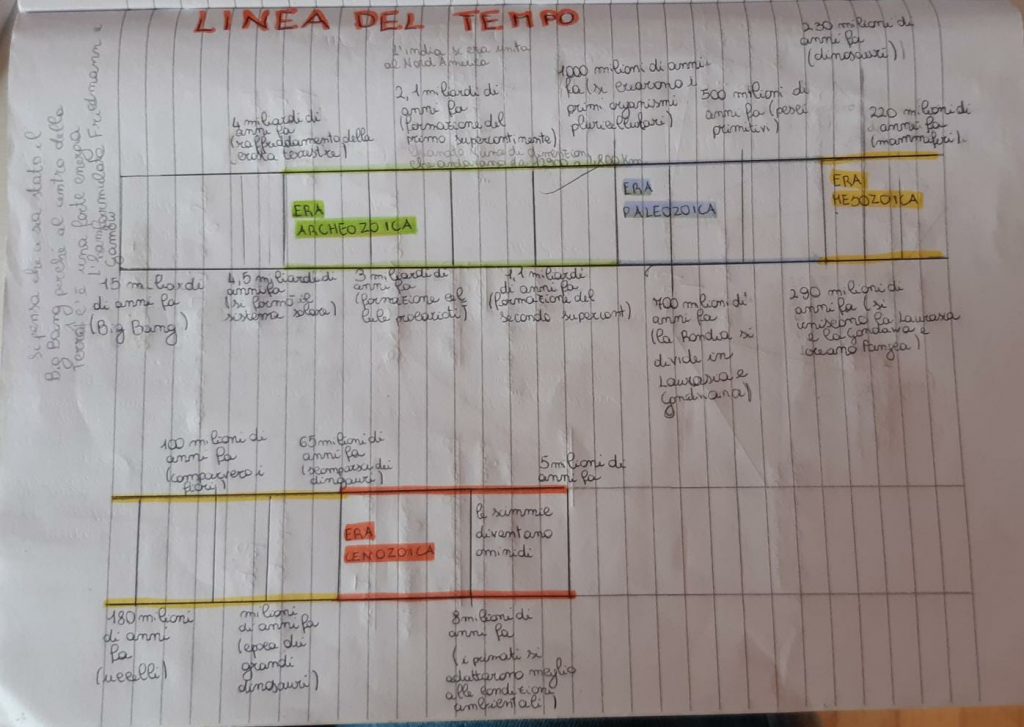 LINEA DEL TEMPO
L'india si era unita
al Nord America
4 miliardi di
anni fa
(raffreddamento della
crosta terrestre)
2,1 miliardi di
anni fa
(formazione del
primo supercontinente)
1000 milioni di anni
fa (si crearono i
primi organismi
pluricellulari)
500 milioni di
anni fa (pesci
primitivi)
230 milioni di
anni fa
(dinosauri)
220 milioni di
anni fa
(mammiferi).
ERA
ARCHEOZOICA
ERA
PALEOZOICA
ERA
MESOZOICA
15 miliardi
di anni fa
(Big Bang)
4,5 miliardi di
anni fa
(si formò il
sistema solare)
3 miliardi di
anni fa
(formazione
1,1 miliardi
di anni fa
(formazione del
secondo supercont)
700 milioni di
anni fa
(la Rondia si
divide in
Laurasia e
Gondwana)
290 milioni di
anni fa (si
uniscono la Laurasia
e la Gondawa e
oceano Pangea)
Si pensa che ci sia stato il
Big Bang perché al centro della
Terra c'è una forte energia
Friedmann e
Gamow
100 milioni di
anni fa
(comparvero i
fiori)
65 milioni di
anni fa
(scomparsa dei
dinosauri)
5 milioni di
anni fa
ERA
CENOZOICA
le scimmie
diventano
ominidi
180 milioni
di anni
fa
(uccelli)
milioni
di anni fa
(epoca dei
grandi
dinosauri)
8 milioni di
anni fa
(i primati si
adattarono meglio
alle condizioni
ambientali)